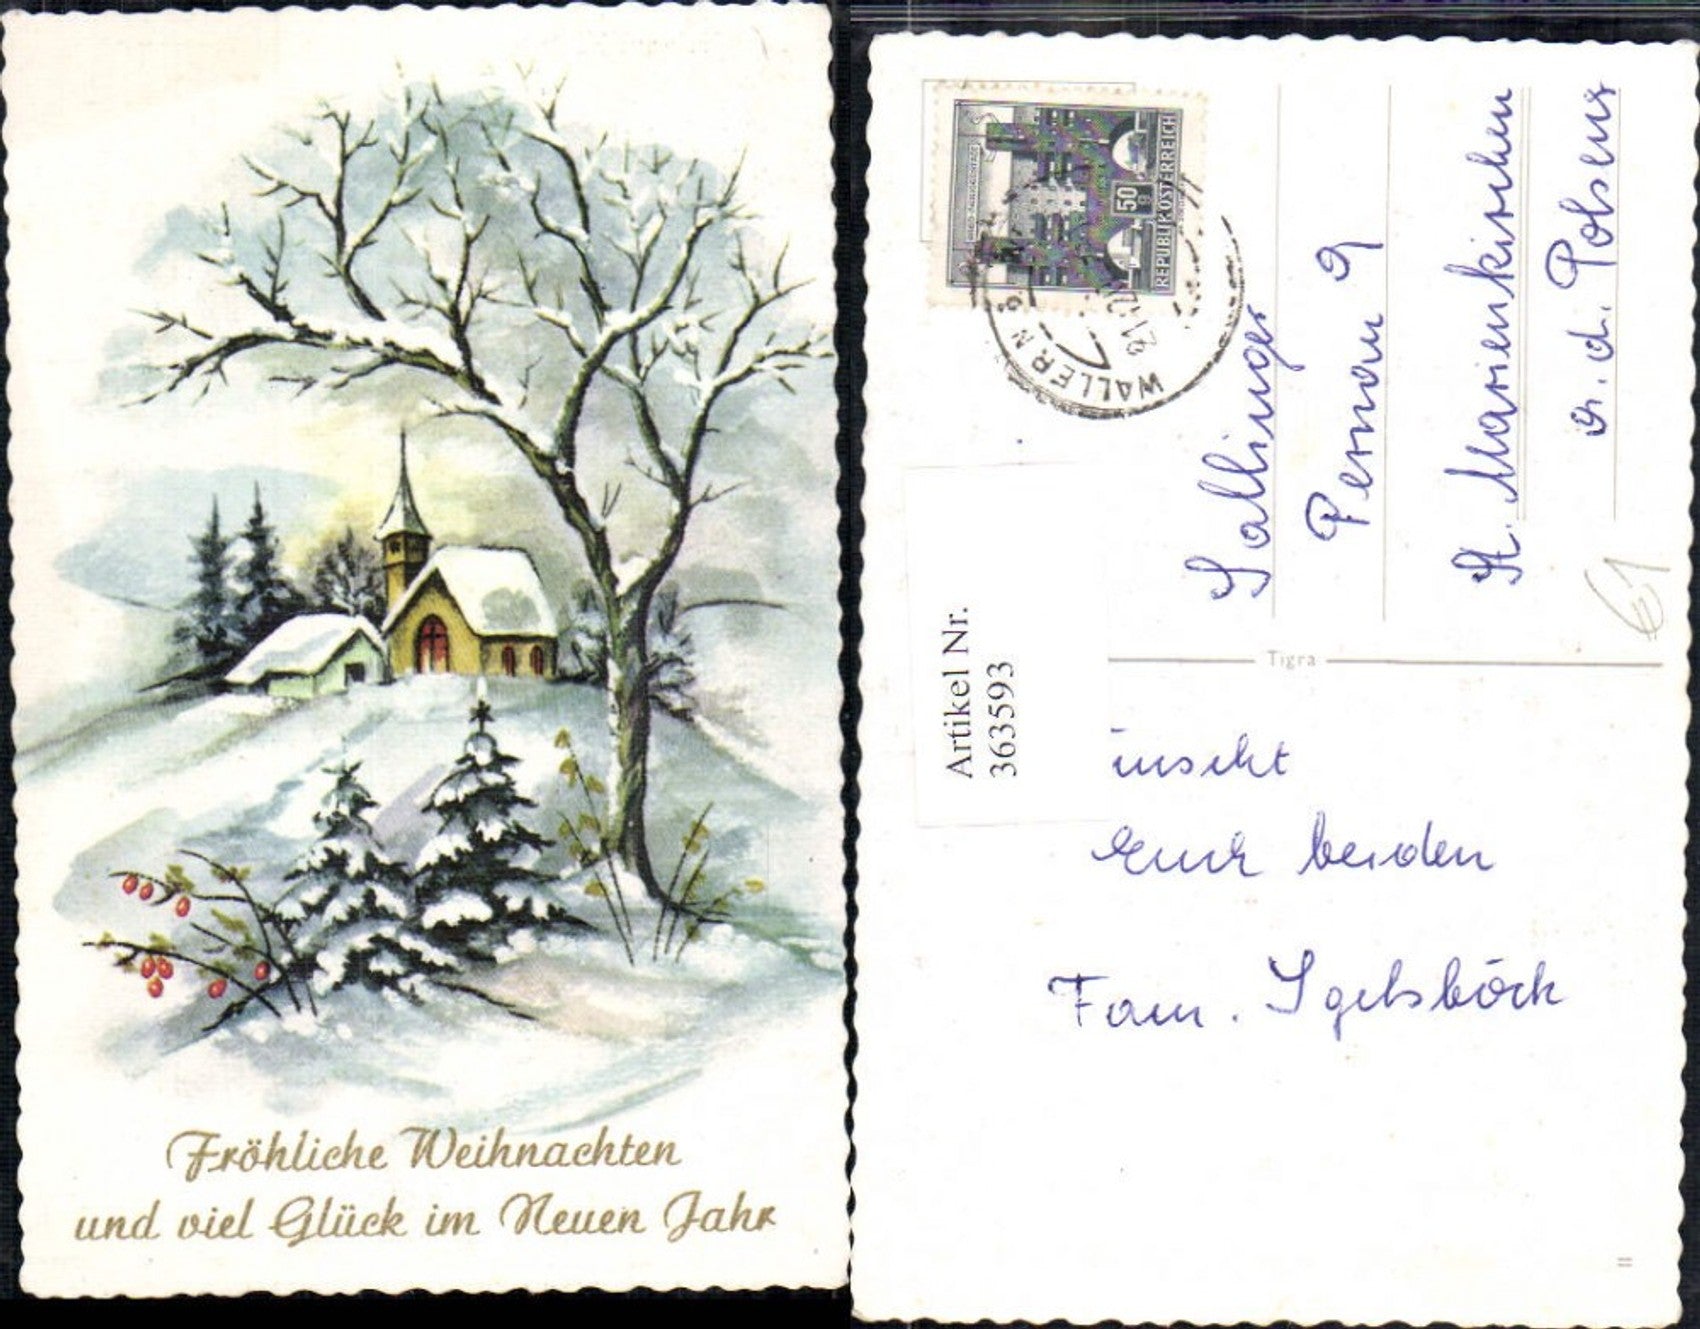 Fröhliche Weihnachten
und viel Glück im Neuen Jahr
REPUBLIK ÖSTERREICH
50
g
WALLERN
21.
Sallinger
Pernau 9
St. Marienkirchen
a. d. Polsenz
€1
Artikel Nr.
363593
Tigra
wünscht
Euch beiden
Fam. Igelsböck